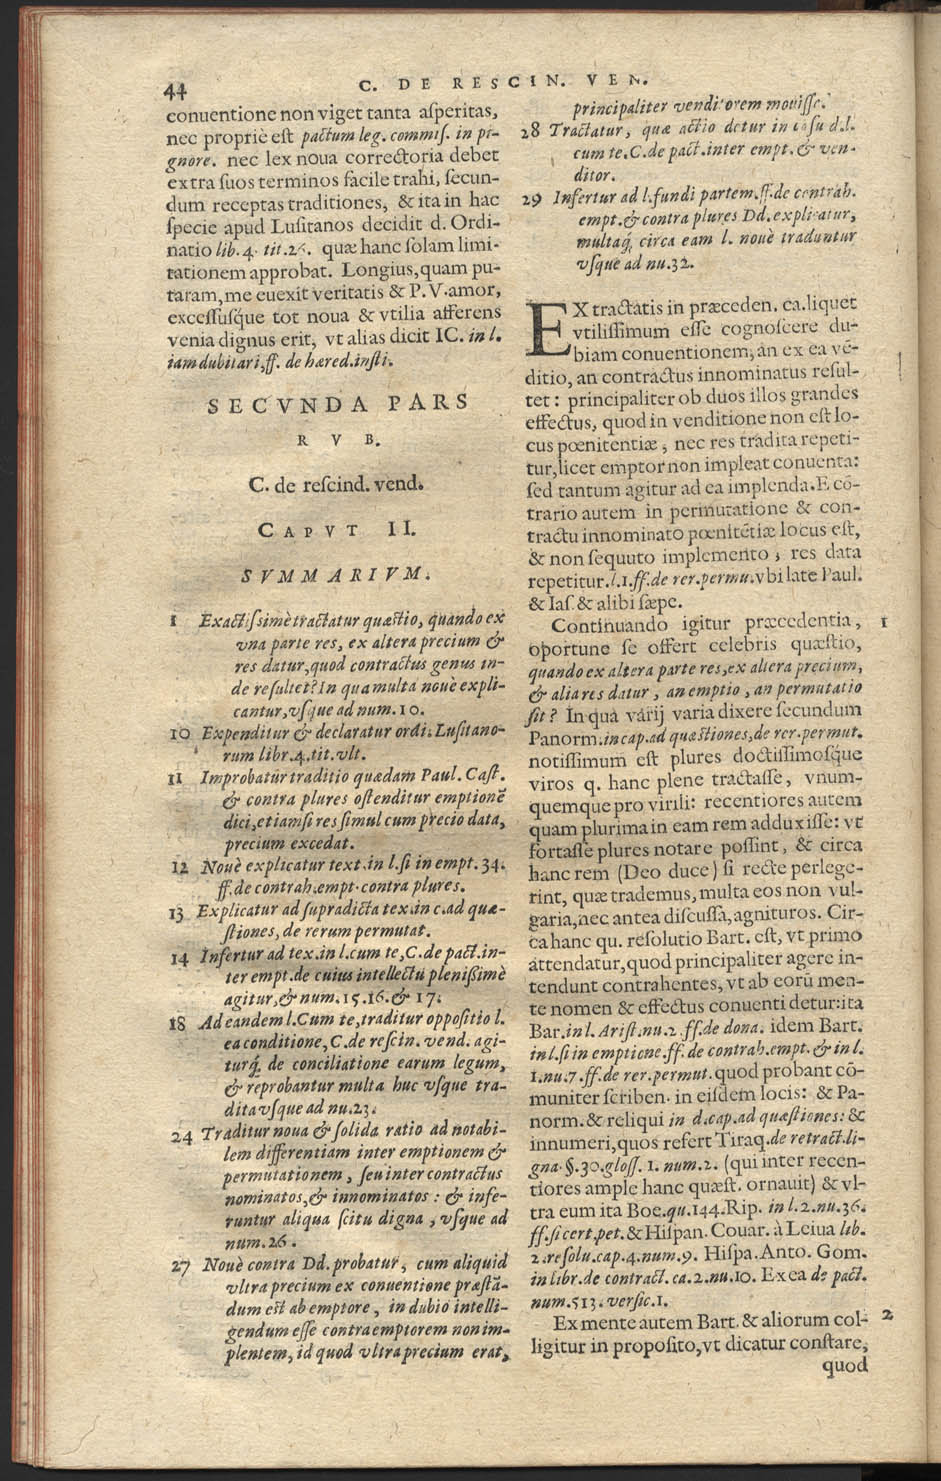 44
C. DE RESCIN. VEN.
conuentione non viget tanta aſperitas,
nec propriè eſt pactum leg. commiſ. in pi-
gnore. nec lex noua correctoria debet
extra ſuos terminos facile trahi, ſecun-
dum receptas traditiones, & ita in hac
ſpecie apud Luſitanos decidit d. Ordi-
natio lib. 4. tit. 26. quæ hanc ſolam limi-
tationem approbat. Longius, quam pu-
taram, me euexit veritatis & P. V. amor,
exceſſuſq́ue tot noua & vtilia afferens
venia dignus erit, vt alias dicit IC. in l.
iam dubitari, ff. de hæred. inſti.
SECVNDA PARS
RVB.
C. de reſcind. vend.
CAPVT II.
SVMMARIVM.
1 Exactiſsimè tractatur quæſtio, quando ex
vna parte res, ex altera precium &
res datur, quod contractus genus in-
de reſultet? In qua multa nouè expli-
cantur, vſque ad num. 10.
10 Expenditur & declaratur ordi. Luſitano-
rum libr. 4. tit. vlt.
11 Improbatur traditio quædam Paul. Caſt.
& contra plures oſtenditur emptionē
dici, etiamſi res ſimul cum precio data,
precium excedat.
12 Nouè explicatur text. in l. ſi in empt. 34.
ff. de contrah. empt. contra plures.
13 Explicatur ad ſupradicta tex. in c. ad quæ-
ſtiones, de rerum permutat.
14 Infertur ad tex. in l. cum te, C. de pact. in-
ter empt. de cuius intellectu pleniſsimè
agitur, & num. 15. 16. & 17.
18 Ad eandem l. Cum te, traditur oppoſitio l.
ea conditione, C. de reſcin. vend. agi-
turq́; de conciliatione earum legum,
& reprobantur multa huc vſque tra-
dita vſque ad nu. 23.
24 Traditur noua & ſolida ratio ad notabi-
lem differentiam inter emptionem &
permutationem, ſeu inter contractus
nominatos, & innominatos: & infe-
runtur aliqua ſcitu digna, vſque ad
num. 26.
27 Nouè contra Dd. probatur, cum aliquid
vltra precium ex conuentione præſtā-
dum eſt ab emptore, in dubio intelli-
gendum eſſe contra emptorem non im-
plentem, id quod vltra precium erat,
principaliter venditorem mouiſſe.
28 Tractatur, quæ actio detur in caſu d. l.
cum te. C. de pact. inter empt. & ven-
ditor.
29 Infertur ad l. fundi partem. ff. de contrah.
empt. & contra plures Dd. explicatur,
multaq́; circa eam l. nouè traduntur
vſque ad nu. 32.
EX tractatis in præceden. ca. liquet
vtiliſſimum eſſe cognoſcere du-
biam conuentionem, an ex ea vē-
ditio, an contractus innominatus reſul-
tet: principaliter ob duos illos grandes
effectus, quod in venditione non eſt lo-
cus pœnitentiæ, nec res tradita repeti-
tur, licet emptor non impleat conuenta:
ſed tantum agitur ad ea implenda. E cō-
trario autem in permutatione & con-
tractu innominato pœnitētiæ locus eſt,
& non ſequuto implemento, res data
repetitur. l. 1. ff. de rer. permu. vbi late Paul.
& Iaſ. & alibi ſæpe.
Continuando igitur præcedentia, 1
oportune ſe offert celebris quæſtio,
quando ex altera parte res, ex altera precium,
& alia res datur, an emptio, an permutatio
ſit? In qua varij varia dixere ſecundum
Panorm. in cap. ad quæſtiones, de rer. permut.
notiſſimum eſt plures doctiſſimoſq́ue
viros q. hanc plene tractaſſe, vnum-
quemque pro virili: recentiores autem
quam plurima in eam rem adduxiſſe: vt
fortaſſe plures notare poſſint, & circa
hanc rem (Deo duce) ſi recte perlege-
rint, quæ trademus, multa eos non vul-
garia, nec antea diſcuſſa, agnituros. Cir-
ca hanc qu. reſolutio Bart. eſt, vt primo
attendatur, quod principaliter agere in-
tendunt contrahentes, vt ab eorū men-
te nomen & effectus conuenti detur: ita
Bar. in l. Ariſt. nu. 2. ff. de dona. idem Bart.
in l. ſi in emptione. ff. de contrah. empt. & in l.
1. nu. 7. ff. de rer. permut. quod probant cō-
muniter ſcriben. in eiſdem locis: & Pa-
norm. & reliqui in d. cap. ad quæſtiones: &
innumeri, quos refert Tiraq. de retract. li-
gna. §. 30. gloſſ. 1. num. 2. (qui inter recen-
tiores ample hanc quæſt. ornauit) & vl-
tra eum ita Boe. qu. 144. Rip. in l. 2. nu. 36.
ff. ſi cert. pet. & Hiſpan. Couar. à Leiua lib.
2. reſolu. cap. 4. num. 9. Hiſpa. Anto. Gom.
in libr. de contract. ca. 2. nu. 10. Ex ea de pact.
num. 513. verſic. 1.
Ex mente autem Bart. & aliorum col- 2
ligitur in propoſito, vt dicatur conſtare,
quod